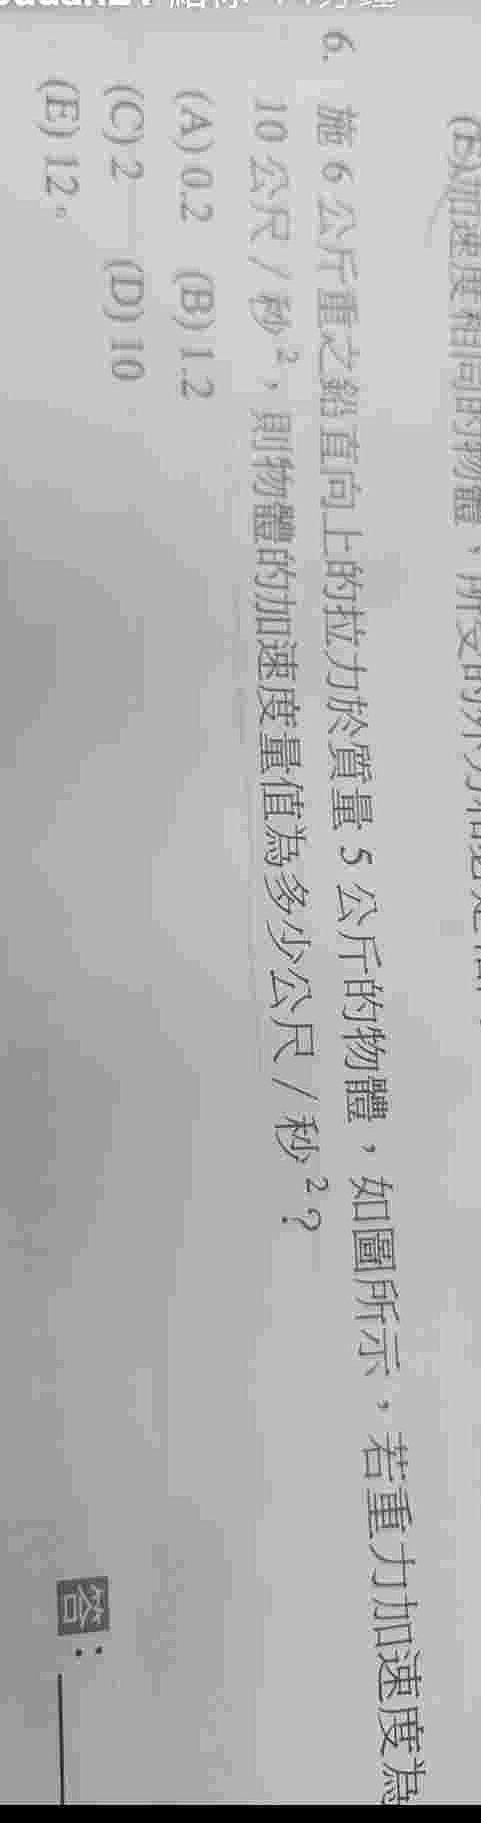 6. 施 6 公斤重之鉛直向上的拉力於質量 5 公斤的物體，如圖所示，若重力加速度為
10 公尺/秒²，則物體的加速度量值為多少公尺/秒²？
(A) 0.2 (B) 1.2
(C) 2 (D) 10
(E) 12。
答：